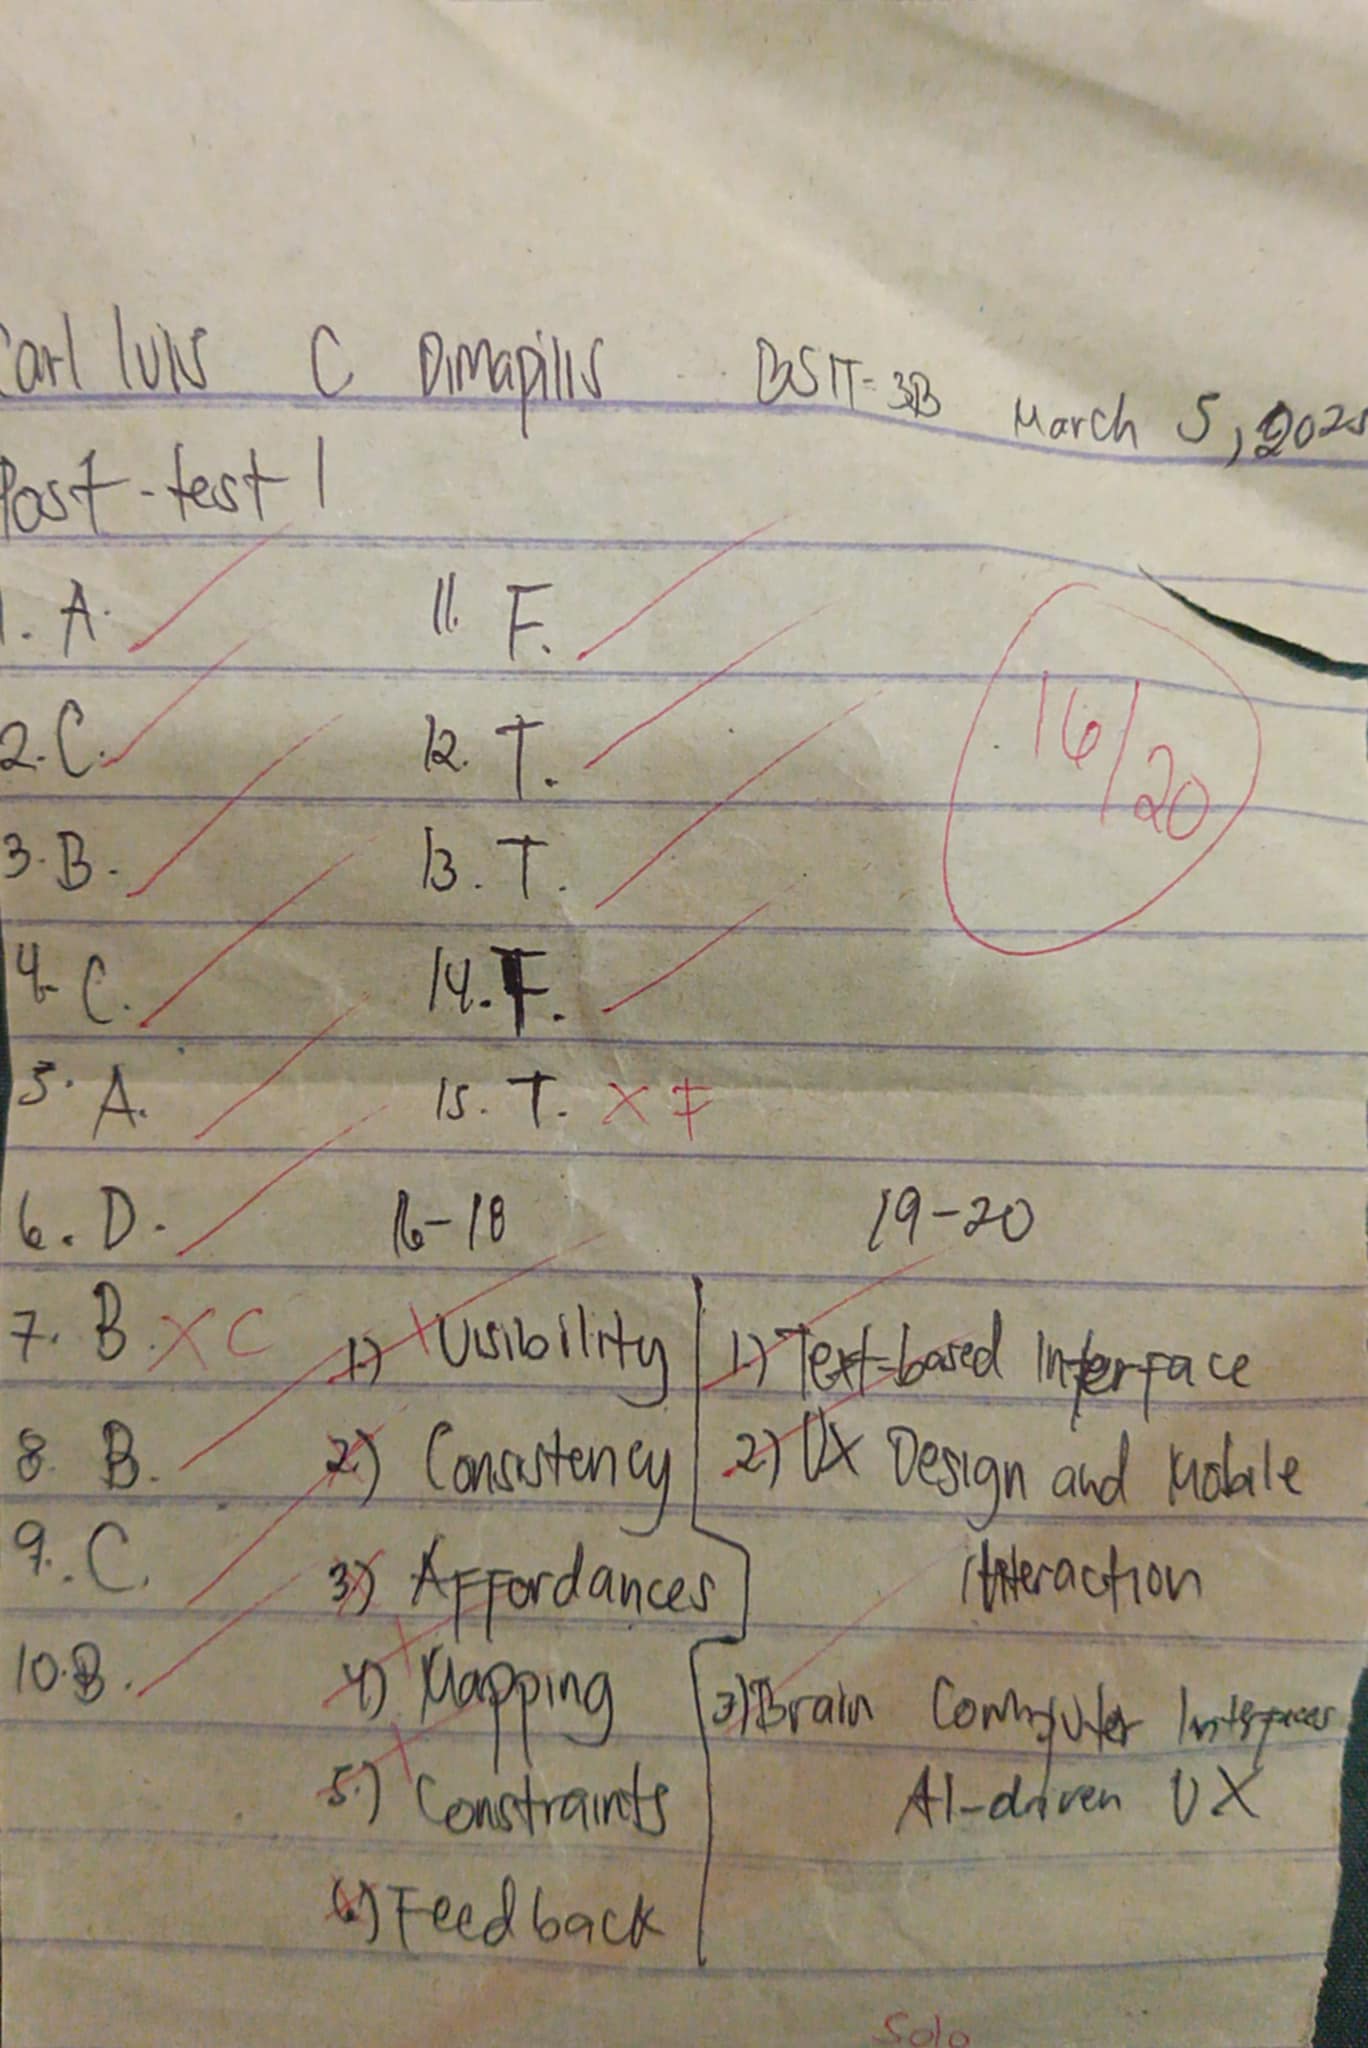 Carl luis C Dimapilis BSIT-3B March 5, 2025
Post-test 1
1. A.
2. C.
3. B.
4. C.
5. A.
6. D.
7. B. X C
8. B.
9. C.
10. B.
11. F.
12. T.
13. T.
14. F.
15. T. X F
16/20
16-18
1.) Visibility
2.) Consistency
3) Affordances
4) Mapping
5.) Constraints
6.) Feedback
19-20
1.) Text-based Interface
2.) UX Design and Mobile
interaction
3) Brain Computer Interfaces
AI-driven UX
Solo